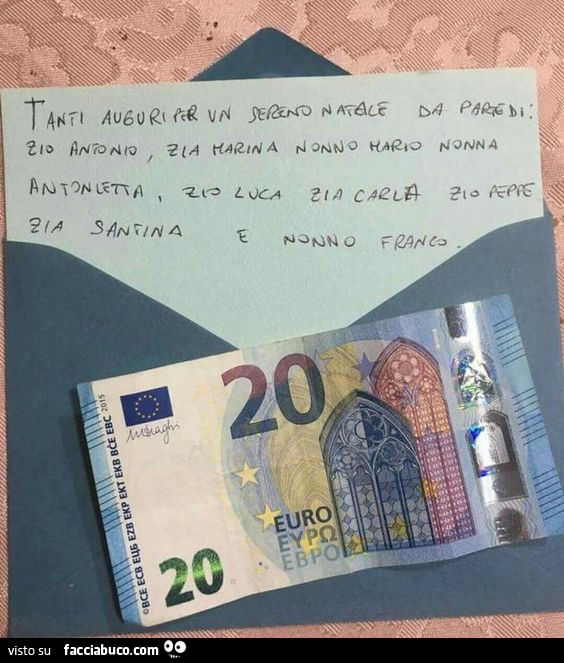 TANTI AUGURI PER UN SERENO NATALE DA PARTE DI:
ZIO ANTONIO, ZIA MARINA NONNO MARIO NONNA
ANTONIETTA, ZIO LUCA ZIA CARLA ZIO PEPPE
ZIA SANTINA E NONNO FRANCO.
BCE ECB ЕЦБ EZB EKP EKT EKB BĊE EBC 2015
20
EURO
ΕΥΡΩ
ЕВРО
20
visto su facciabuco.com